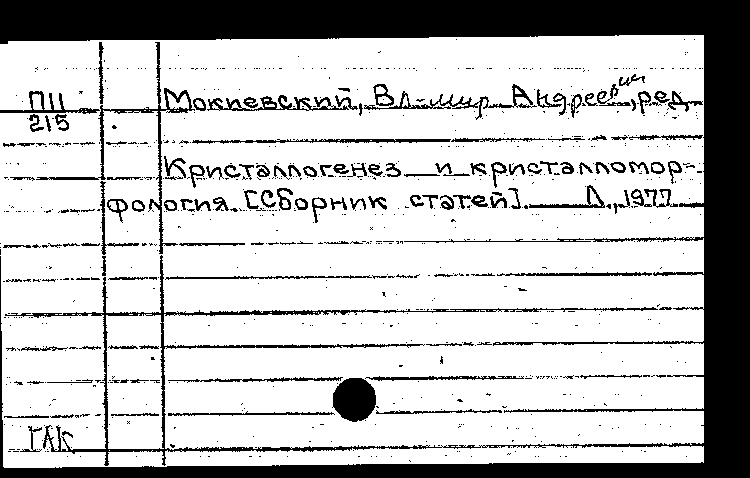 П11
215
Мокиевский, Вл-мир Андреевич, ред.
Кристаллогенез и кристалломор-
фология. [Сборник статей]. Л., 1977
ГАК